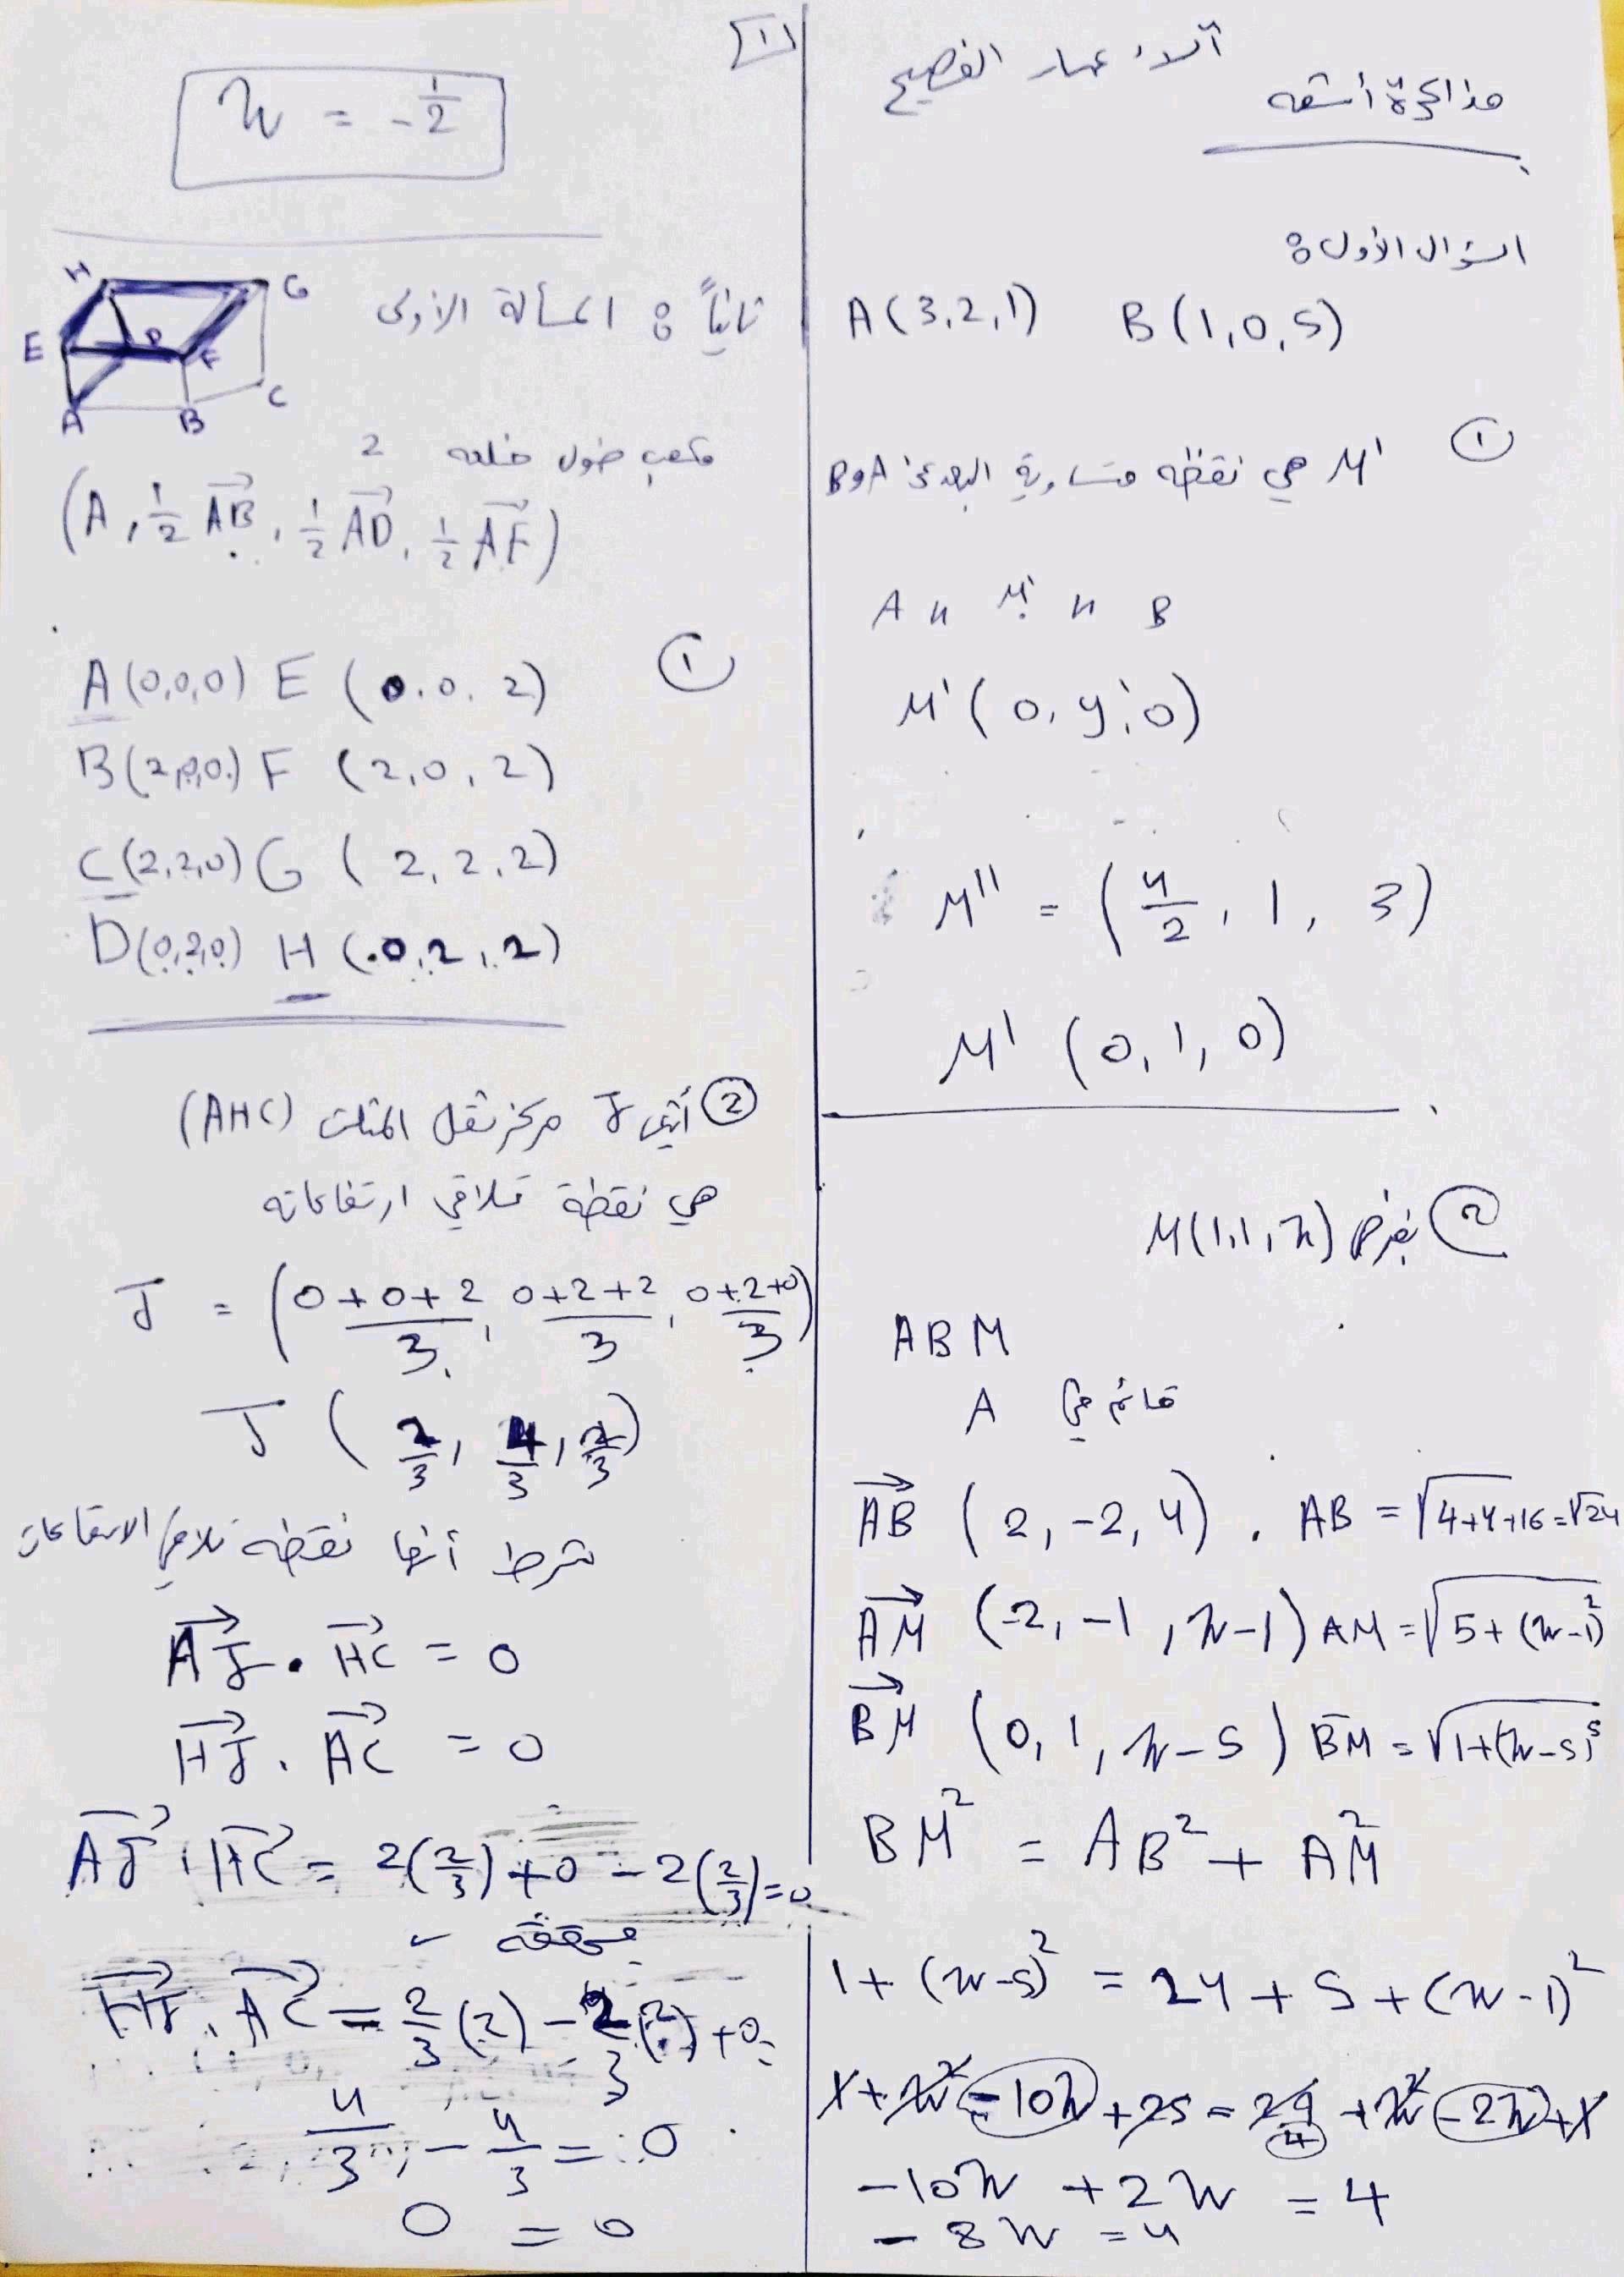 مذاكرة أشعه
السؤال الأول:
A(3,2,1) B(1,0,5)
① M' هي نقطه متساوية البعد عن A و B
A ,, M' ,, B
M'(0, y, 0)
M'' = (4/2, 1, 3)
M' (0, 1, 0)
② بفرض M(1,1,z)
ABM
قائم في A
AB (2, -2, 4) . AB = √4+4+16 = √24
AM (-2, -1, z-1) AM = √5+(z-1)²
BM (0, 1, z-5) BM = √1+(z-5)²
BM² = AB² + AM²
1 + (z-5)² = 24 + 5 + (z-1)²
1 + z² - 10z + 25 = 29 + z² - 2z + 1
4
-10z + 2z = 4
-8z = 4
[١]
z = -1/2
ثانياً: المسألة الأولى
H G
E D F
A B C
مكعب طول ضلعه 2
(A, 1/2 AB, 1/2 AD, 1/2 AE)
①
A(0,0,0) E (0,0,2)
B(2,0,0) F (2,0,2)
C(2,2,0) G (2,2,2)
D(0,2,0) H (0,2,2)
② أثبت J مركز ثقل المثلث (AHC)
هي نقطة تلاقي ارتفاعاته
J = (0+0+2/3, 0+2+2/3, 0+2+0/3)
J (2/3, 4/3, 2/3)
شرط أنها نقطه تلاقي الارتفاعات
AJ . HC = 0
HJ . AC = 0
AJ . HC = 2(2/3)+0-2(2/3)=0
محققه ✓
HJ . AC = 2/3 (2) - 2/3 (2) + 0 =
4/3 - 4/3 = 0
0 = 0